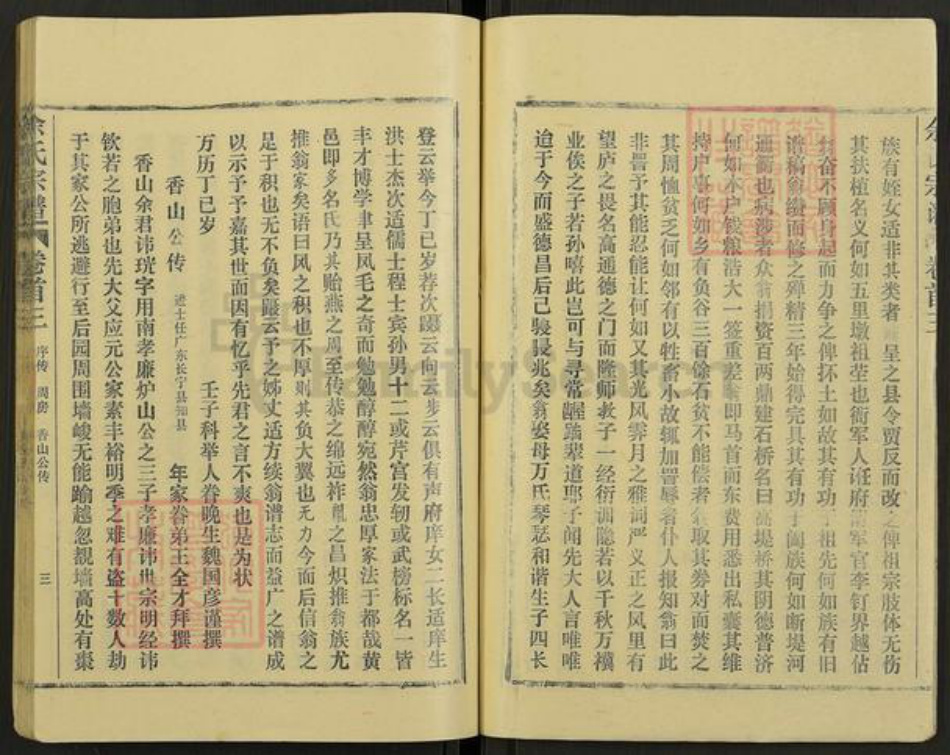 族有姪女适非其类者 呈之县令贾反而改之俾祖宗肢体无伤
其扶植名义何如五里墩祖茔也衙军人诳府 军官李钉界越佔
奋不顾身起而力争之俾抔土如故其有功 祖先何如族有旧
谱稿翁缵而修之殚精三年始得完具其有功于阖族何如断堤河
通衢也病涉者众翁捐资百两鼎建石桥名曰高堤桥其阴德普济
何如本户钱粮浩大一签重差翁即马首而东费用悉出私囊其维
持户事何如乡有负谷三百馀石贫不能偿者翁取其券对面焚之
其周恤贫乏何如邻有以牲畜小故辄加詈辱者仆人报知翁曰此
非詈予其能忍能让何如又其光风霁月之雅词严义正之风里有
望庐之畏名高通德之门而隆师教子一经衍训隐若以千秋万禩
业俟之子若孙嘻此岂可与寻常龌踏辈道耶予闻先大人言唯唯
迨于今而盛德昌后已骎骎兆矣翁娶母万氏琴瑟和谐生子四长
登云举今丁巳岁荐次蹑云向云步云俱有声府庠女二长适庠生
洪士杰次适儒士程士宾孙男十二或芹宫发轫或武榜标名一皆
丰才博学聿呈风毛之奇而勉勉醇醇宛然翁忠厚家法于都哉黄
邑即多名氏乃其贻燕之周至传恭之绵远祚胤之昌炽推翁族尤
推翁家矣语曰风之积也不厚则其负大翼也无力今面后信翁之
足于积也无不负矣蹑云予之姊丈适方续翁谱志而益广之谱成
以示予予嘉其世而因有忆乎先君之言不爽也是为状
万历丁巳岁 壬子科举人眷晚生魏国彦谨撰
香山公传 进士任广东长宁县知县 年家眷弟王全才拜撰
香山余君讳珖字用南孝廉炉山公之三子孝廉讳世宗明经讳
钦若之胞弟也先大父应元公家素丰裕明季之难有盗十数人劫
于其家公所逃避行至后园周围墙峻无能踰越忽覩墙高处有枣
余氏宗谱 卷首三 序传 周房 香山公传 三